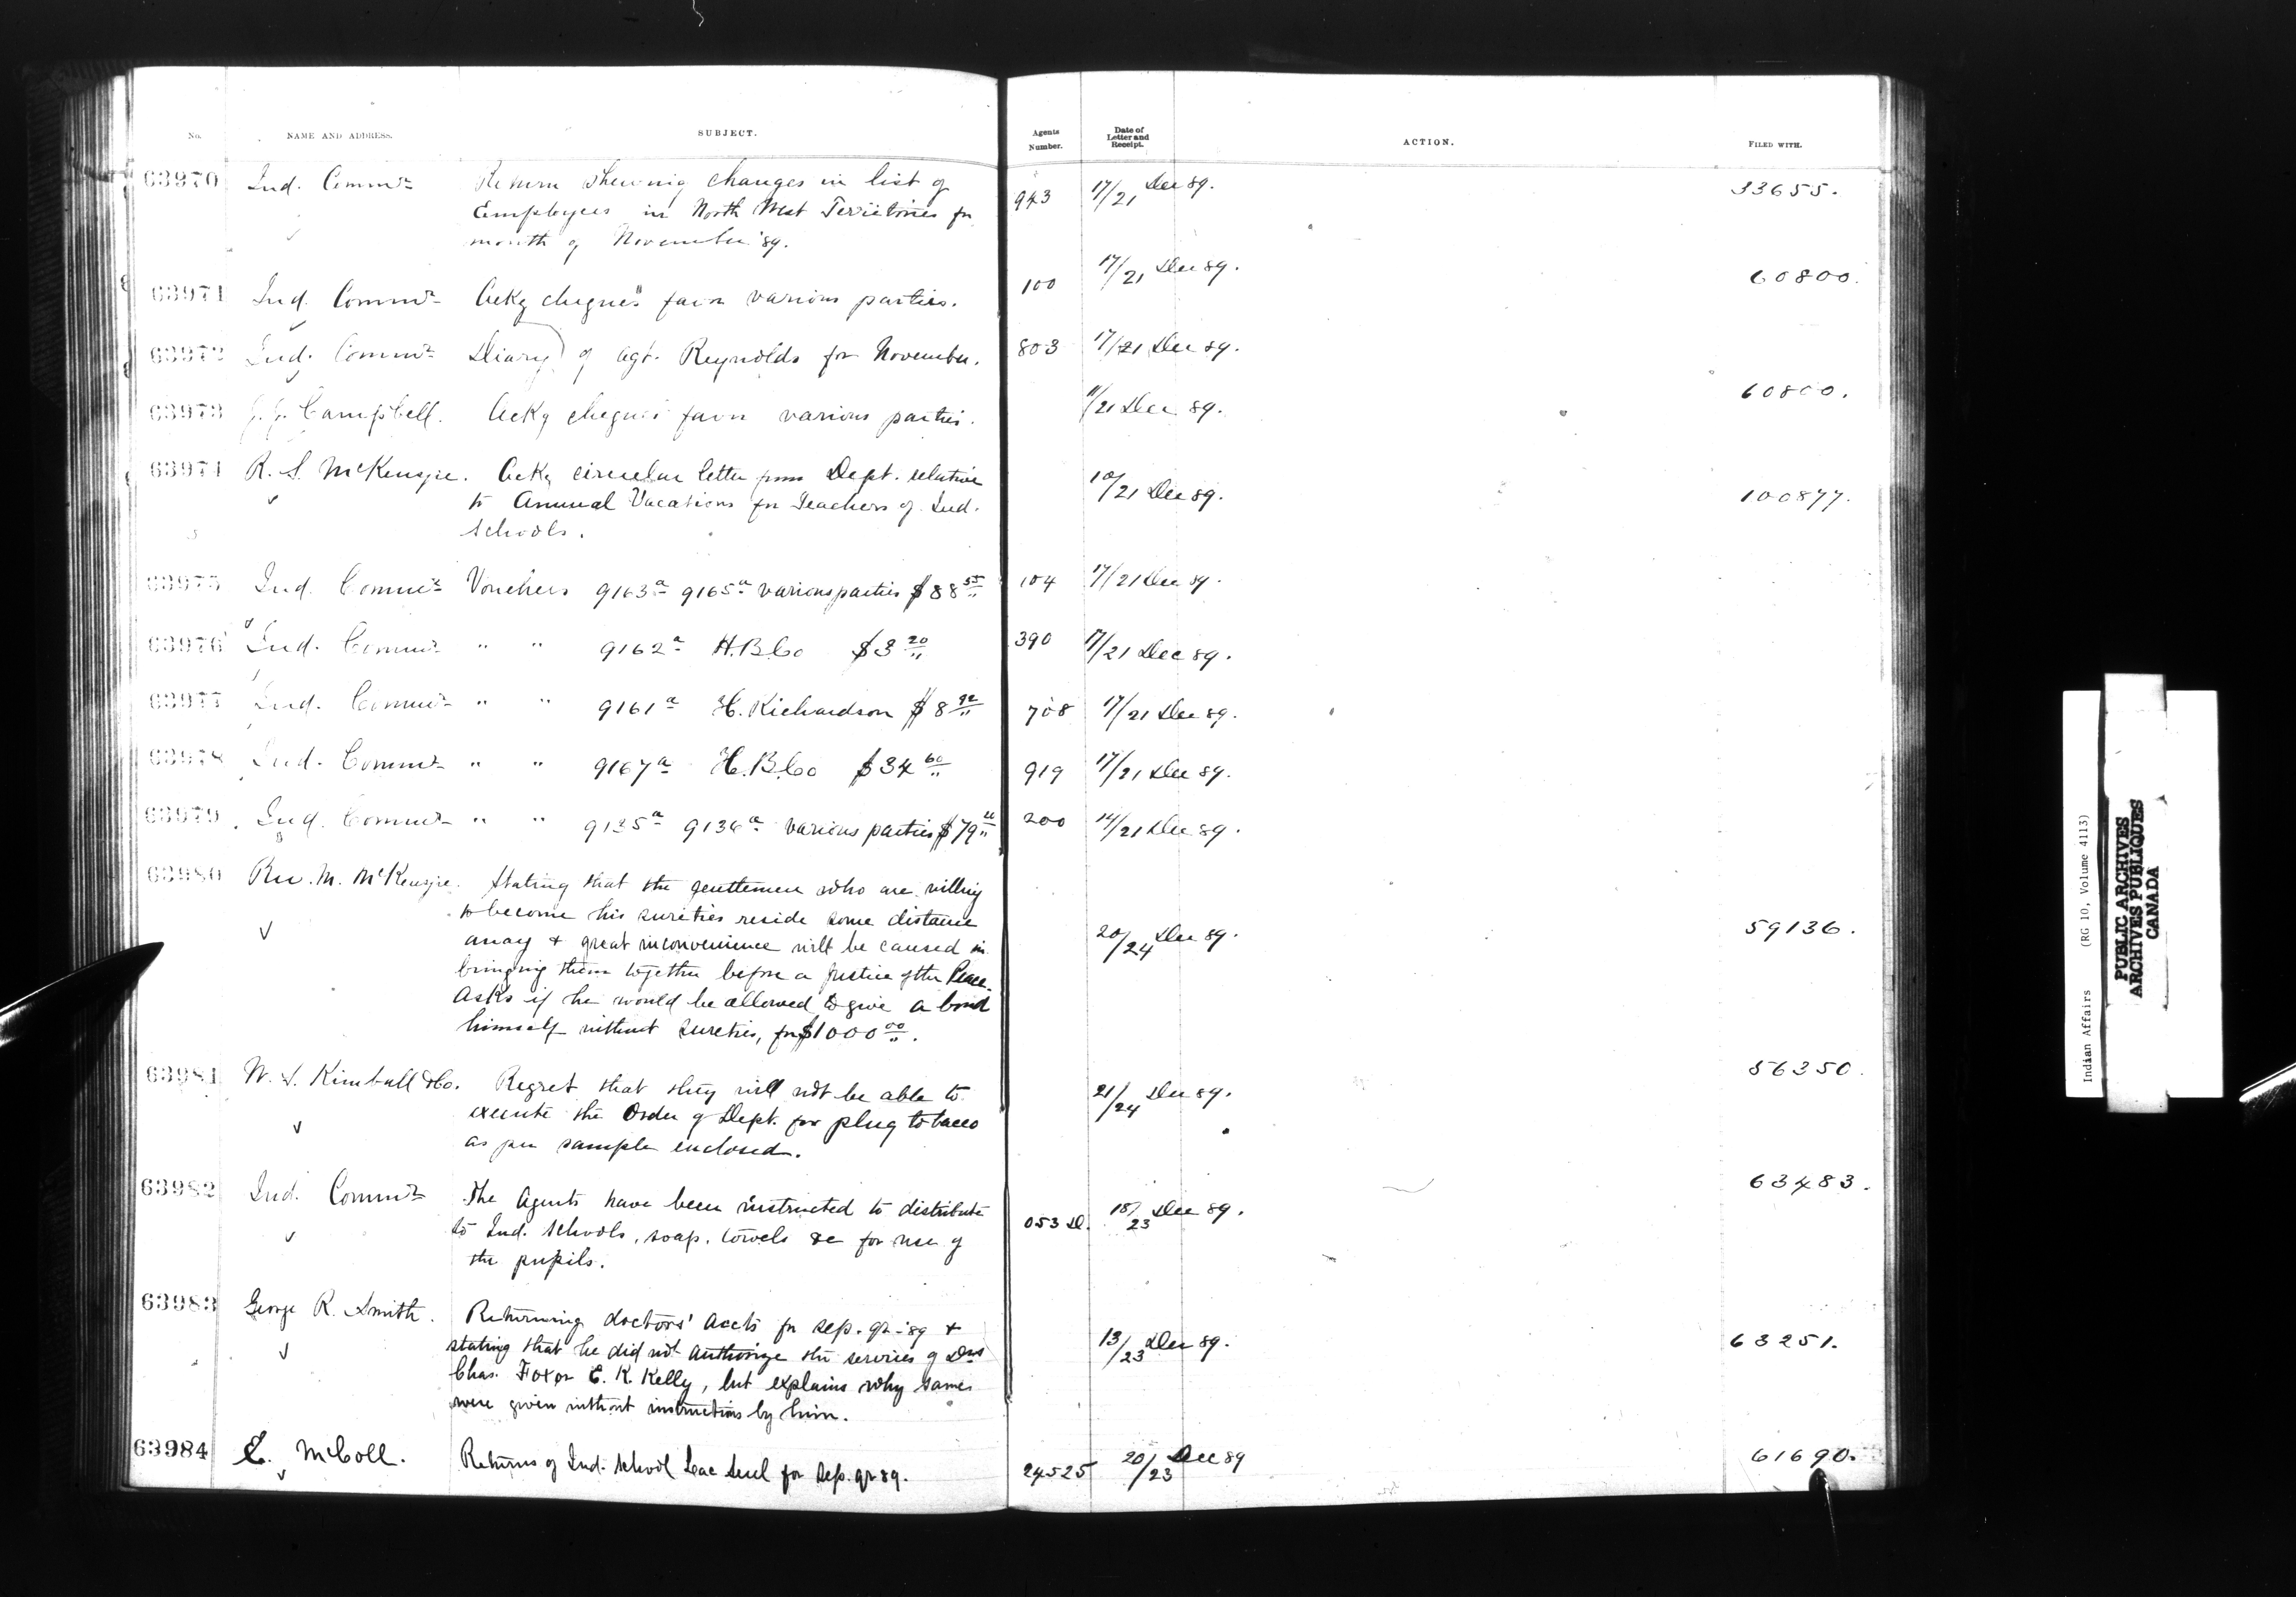 No. NAME AND ADDRESS. SUBJECT. Agents Number. Date of Letter and Receipt. ACTION. FILED WITH.
63970 Ind. Commr Return shewing changes in list of 943 17/21 Dec 89. 33655.
Employees in North West Territories for
month of November '89.
63971 Ind. Commr Ackg cheques favor various parties. 100 17/21 Dec 89. 60800.
63972 Ind. Commr Diary of Agt. Reynolds for November. 803 17/21 Dec 89.
63973 J. J. Campbell. Ackg cheques favor various parties. /21 Dec 89. 60800.
63974 R. S. McKenzie. Ackg circular letter from Dept. relative 10/21 Dec 89. 100877.
to Annual Vacations for Teachers of Ind.
Schools.
63975 Ind. Commr Vouchers 9163a 9165a various parties $88 55 104 17/21 Dec 89.
63976 Ind. Commr " " 9162a H.B.Co $3 20 390 17/21 Dec 89.
63977 Ind. Commr " " 9161a H. Richardson $8 708 17/21 Dec 89.
63978 Ind. Commr " " 9167a H.B.Co $34 60 919 17/21 Dec 89.
63979 Ind. Commr " " 9135a 9136a various parties $79 200 14/21 Dec 89.
63980 Rev. M. McKenzie. Stating that the gentlemen who are willing
to become his sureties reside some distance 20/24 Dec 89. 59136.
away & great inconvenience will be caused in
bringing them together before a Justice of the Peace.
Asks if he would be allowed to give a bond
himself without sureties, for $1000 00.
63981 W. S. Kimball & Co. Regret that they will not be able to 21/24 Dec 89. 56350.
execute the Order of Dept. for plug tobacco
as per sample enclosed.
63982 Ind. Commr The Agents have been instructed to distribute 053 D. 18/23 Dec 89. 63483.
to Ind. Schools, soap, towels &c for use of
the pupils.
63983 George R. Smith. Returning doctors' accts for Sep. qr-'89 & 13/23 Dec 89. 63251.
stating that he did not authorize the services of Drs
Chas. Fox or E. K. Kelly, but explains why same
were given without instructions by him.
63984 E. McColl. Returns of Ind. School Lac Seul for Sep. qr 89. 24525 20/23 Dec 89 61690.
Indian Affairs (RG 10, Volume 4113)
PUBLIC ARCHIVES
ARCHIVES PUBLIQUES
CANADA